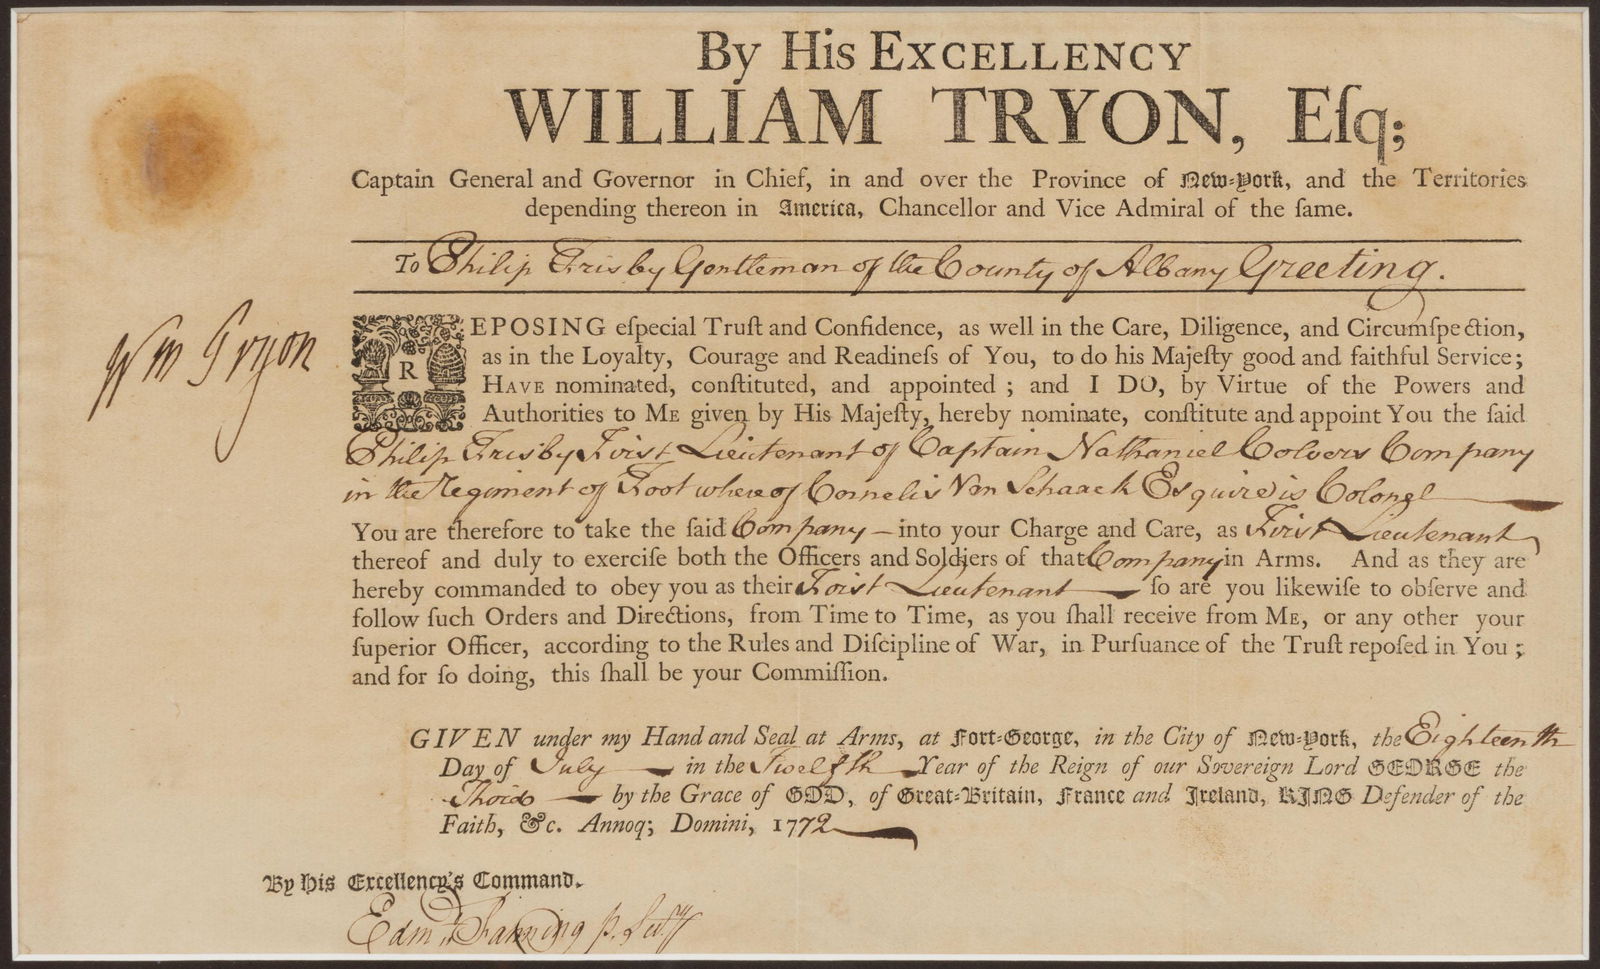 By His EXCELLENCY
WILLIAM TRYON, Eſq;
Captain General and Governor in Chief, in and over the Province of New-York, and the Territories
depending thereon in America, Chancellor and Vice Admiral of the ſame.
To Philip Frisby Gentleman of the County of Albany Greeting.
Wm Tryon
REPOSING eſpecial Truſt and Confidence, as well in the Care, Diligence, and Circumſpection,
as in the Loyalty, Courage and Readineſs of You, to do his Majeſty good and faithful Service;
HAVE nominated, conſtituted, and appointed; and I DO, by Virtue of the Powers and
Authorities to ME given by His Majeſty, hereby nominate, conſtitute and appoint You the ſaid
Philip Frisby First Lieutenant of Captain Nathaniel Colvers Company
in the Regiment of Foot whereof Cornelis Van Schaack Esquire is Colonel
You are therefore to take the ſaid Company – into your Charge and Care, as First Lieutenant
thereof and duly to exerciſe both the Officers and Soldiers of that Company in Arms. And as they are
hereby commanded to obey you as their First Lieutenant — ſo are you likewiſe to obſerve and
follow ſuch Orders and Directions, from Time to Time, as you ſhall receive from ME, or any other your
ſuperior Officer, according to the Rules and Diſcipline of War, in Purſuance of the Truſt repoſed in You;
and for ſo doing, this ſhall be your Commiſſion.
GIVEN under my Hand and Seal at Arms, at Fort-George, in the City of New-York, the Eighteenth
Day of July — in the Twelfth Year of the Reign of our Sovereign Lord GEORGE the
Third — by the Grace of GOD, of Great-Britain, France and Ireland, KING Defender of the
Faith, &c. Annoq; Domini, 1772
By His Excellency's Command.
Edmd Fanning p. Secry